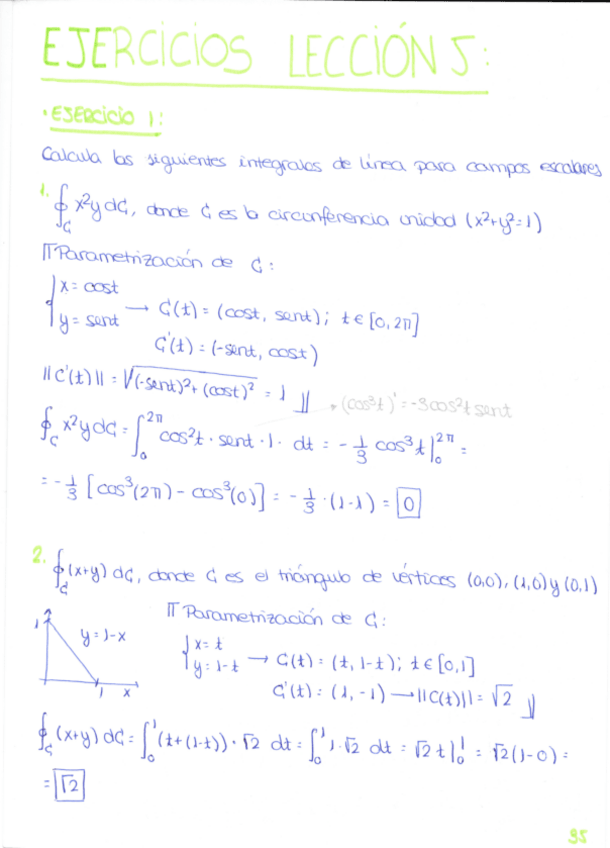 EJERCICIOS LECCIÓN 5:
· EJERCICIO 1:
Calcula las siguientes integrales de línea para campos escalares
1. ∮_C x²y dC, donde C es la circunferencia unidad (x²+y²=1)
∏ Parametrización de C:
{x = cost
y = sent → C(t) = (cost, sent); t ∈ [0, 2π]
C'(t) = (-sent, cost)
||C'(t)|| = √((-sent)² + (cost)²) = 1 ∐ * (cos³t)' = -3cos²t sent
∮_C x²y dC = ∫₀^2π cos²t · sent · 1 · dt = - 1/3 cos³t |₀^2π =
= - 1/3 [cos³(2π) - cos³(0)] = - 1/3 · (1-1) = 0
2. ∮_C (x+y) dC, donde C es el triángulo de vértices (0,0), (1,0) y (0,1)
∏ Parametrización de C:
1 y = 1-x
{x = t
y = 1-t → C(t) = (t, 1-t); t ∈ [0,1]
1 x
C'(t) = (1, -1) → ||C(t)|| = √2 ∐
∮_C (x+y) dC = ∫₀¹ (t+(1-t)) · √2 dt = ∫₀¹ 1 · √2 dt = √2 t |₀¹ = √2 (1-0) =
= √2
95